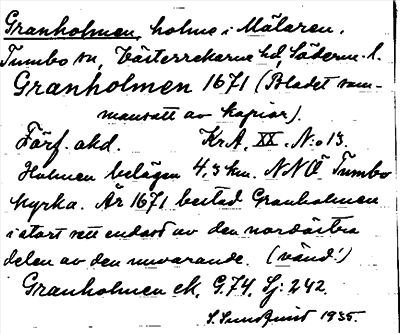 Granholmen, holme i Mälaren,
Tumbo sn, Västerrekarne hd, Söderm. l.
Granholmen 1671 (Bladet sam-
mansatt av kopior).
Förf. okd. KrA, XX. N:o 13.
Holmen belägen 4,3 km. NNÖ Tumbo
kyrka. År 1671 bestod Granholmen
i stort sett endast av den nordöstra
delen av den nuvarande. (vänd!)
Granholmen ek. G.74, Sj: 242.
S. Sundquist 1935.